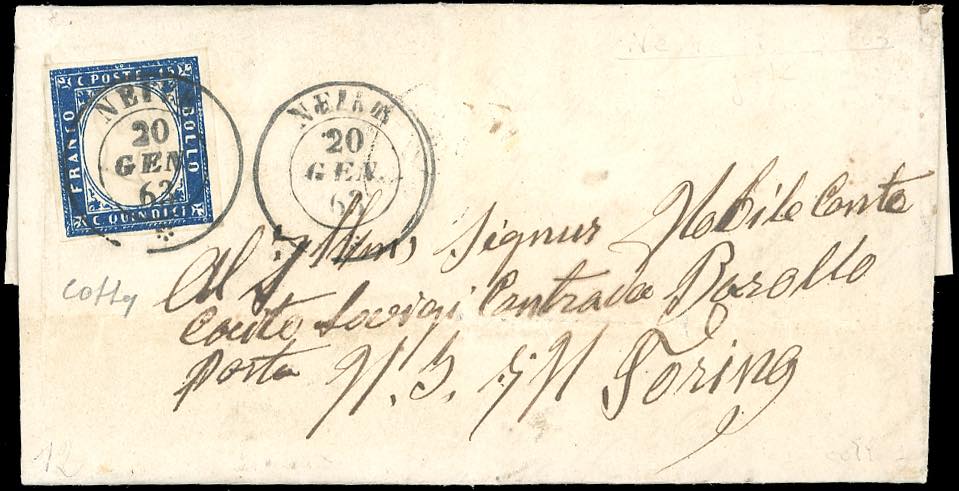 C POSTE 15
FRANCO
BOLLO
C QUINDICI
NEIVE
20
GEN
63
NEIVE
20
GEN
63
Al Illmo Signur Nobile Conte
Conte Luvigi Contrada Barollo
porta N. 3. Torino
12